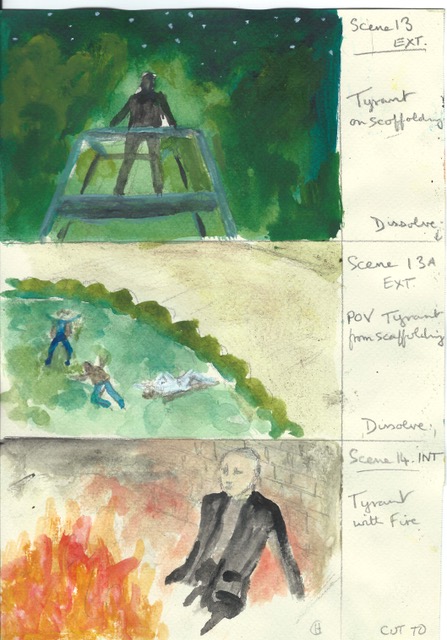 Scene 13
EXT.
Tyrant
on Scoffolding
Dissolve.
Scene 13A
EXT.
POV Tyrant
from Scaffolding
Dissolve.
Scene 14. INT
Tyrant
with Fire
CUT TO